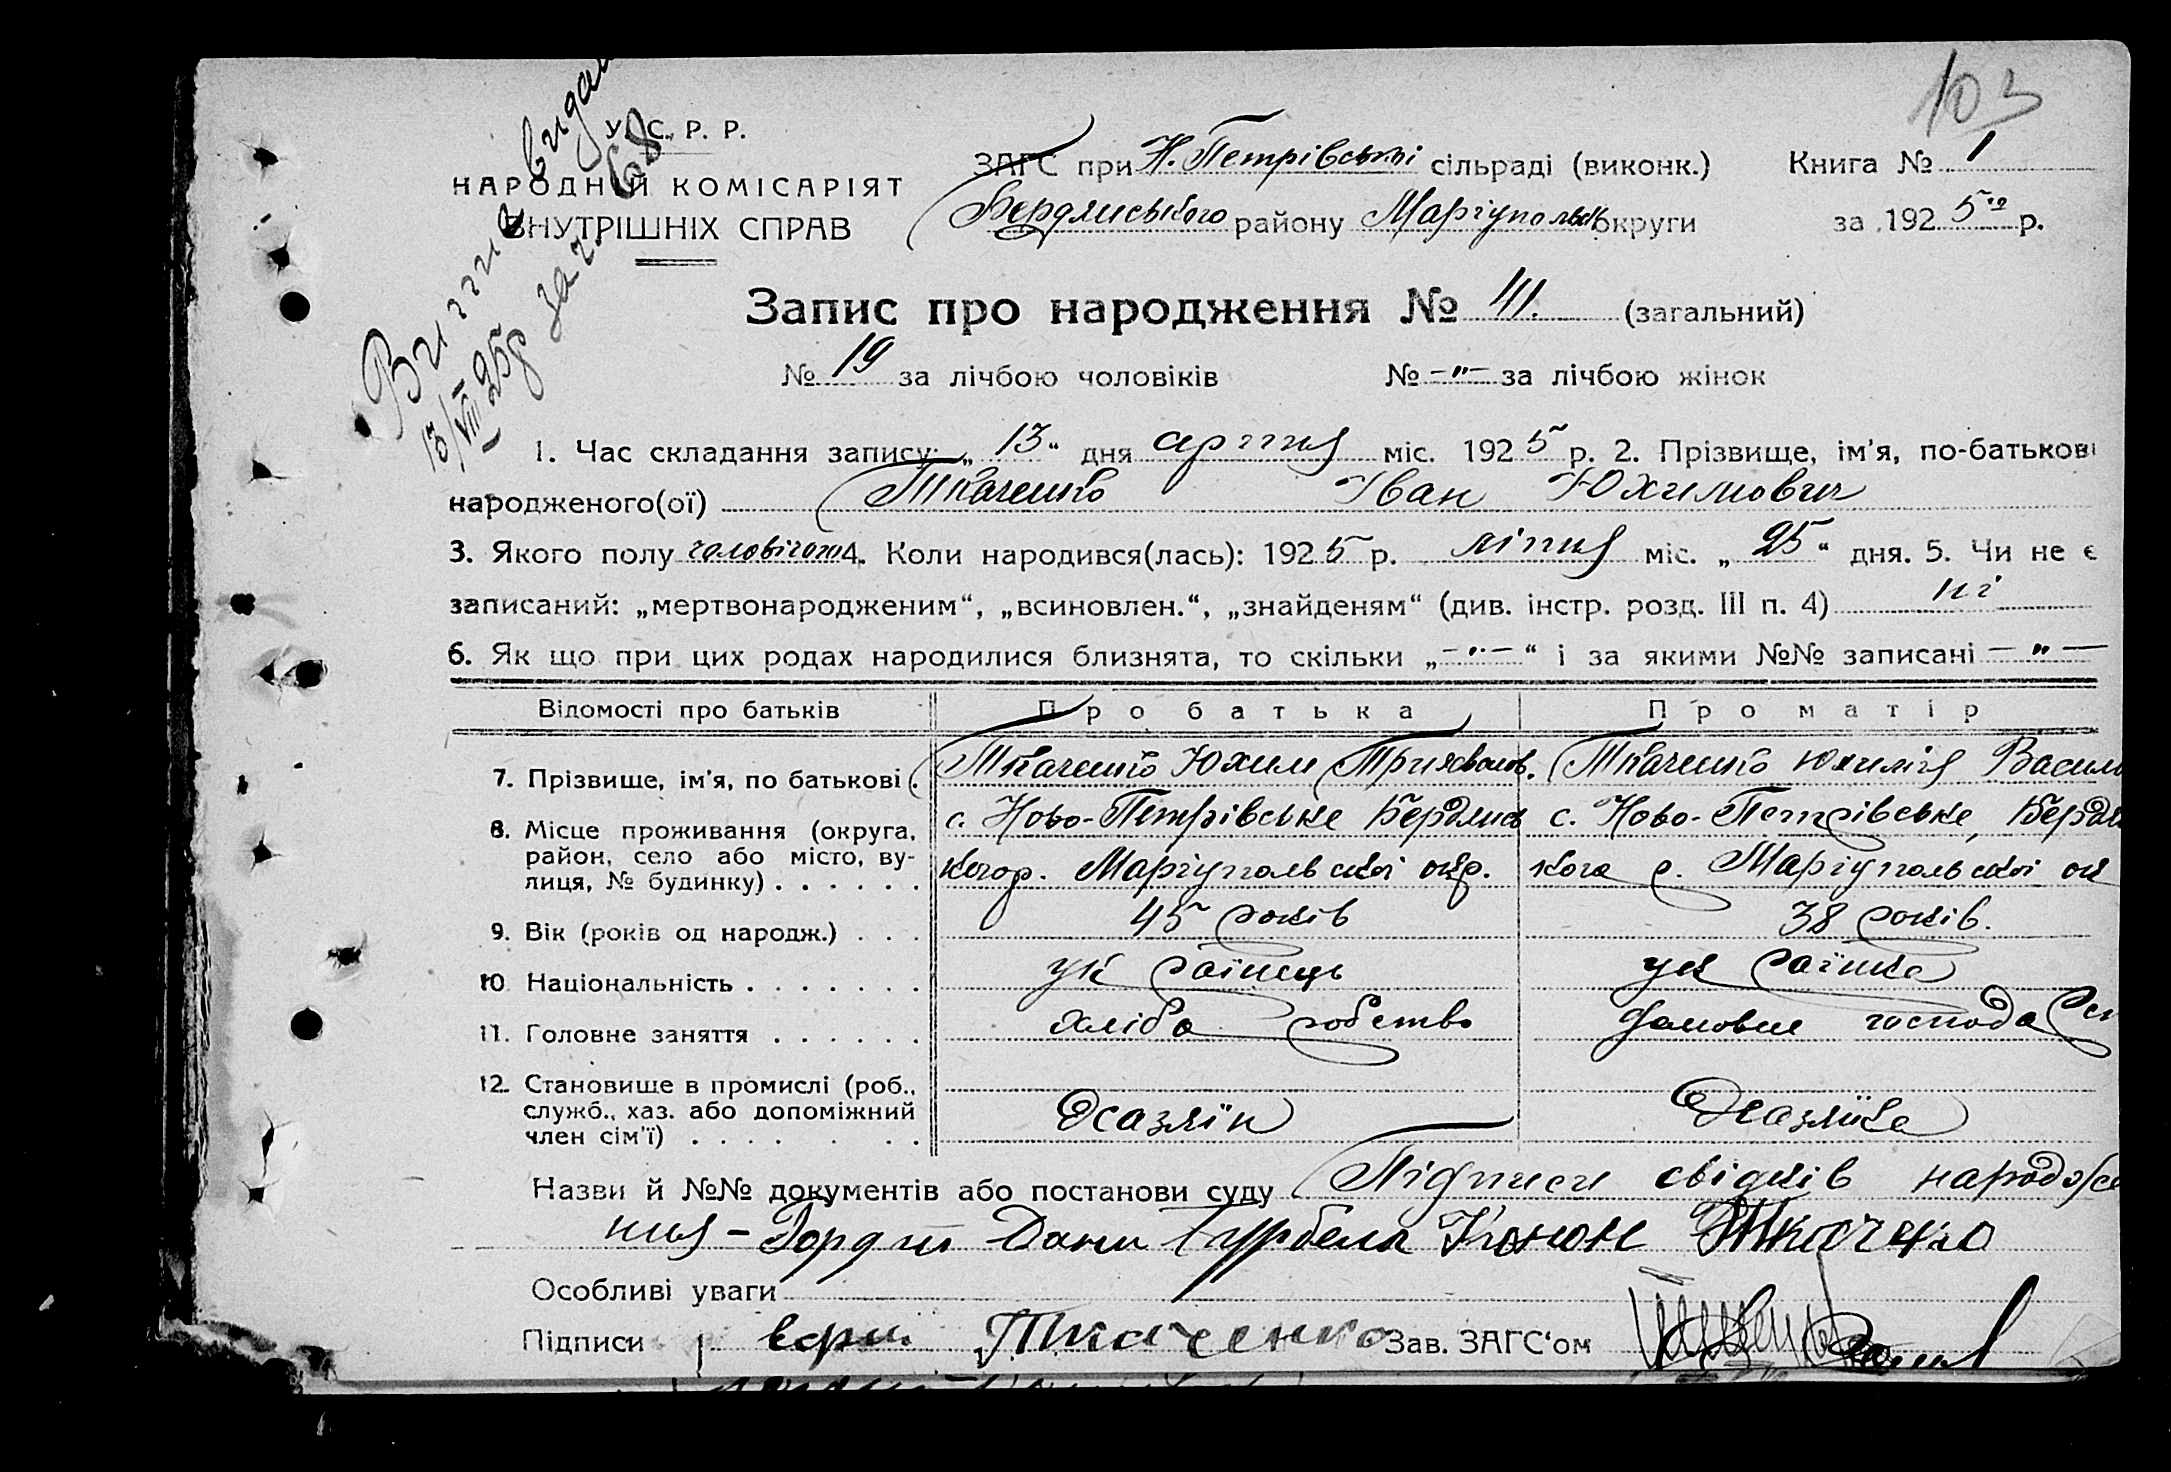 103
Витяг видан
13/VIII 25р за ч. 68
У. С. Р. Р.
НАРОДНІЙ КОМІСАРІЯТ
ВНУТРІШНІХ СПРАВ
ЗАГС при Н. Петрівські сільраді (виконк.) Книга № 1
Бердянського району Маріупольськ округи за 192 5го р.
Запис про народження № 41. (загальний)
№ 19 за лічбою чоловіків № -„- за лічбою жінок
1. Час складання запису: „ 13 “ дня серпня міс. 192 5 р. 2. Прізвище, ім'я, по-батькові
народженого(ої) Ткаченко Іван Юхимович
3. Якого полу чоловічого 4. Коли народився(лась): 192 5 р. ліпня міс. „ 25 “ дня. 5. Чи не є
записаний: „мертвонародженим“, „всиновлен.“, „знайденям“ (див. інстр. розд. III п. 4) ні
6. Як що при цих родах народилися близнята, то скільки „ -„- “ і за якими №№ записані - „ -
Відомості про батьків Про батька Про матір
7. Прізвище, ім'я, по батькові . Ткаченко Юхим Ткаченко Василь
8. Місце проживання (округа, район, село або місто, вулиця, № будинку) . . . . . .
с. Ново-Петрівське Бердянсь с. Ново-Петрівське, Бердян
кого р. Маріупольської окр. кого р. Маріупольської ок
9. Вік (років од народж.) . . . 45 років 38 років.
10 Національність . . . . . . . українець українка
11. Головне заняття . . . . . . хлібо робство домовне господарст
12. Становище в промислі (роб., служб., хаз. або допоміжний член сім'ї) . . . . . . .
Хазяїн Хазяїка
Назви й №№ документів або постанови суду Підписи свідків народже
ння - Дани Конон Ткаченко
Особливі уваги
Підписи Ткаченко Зав. ЗАГС'ом